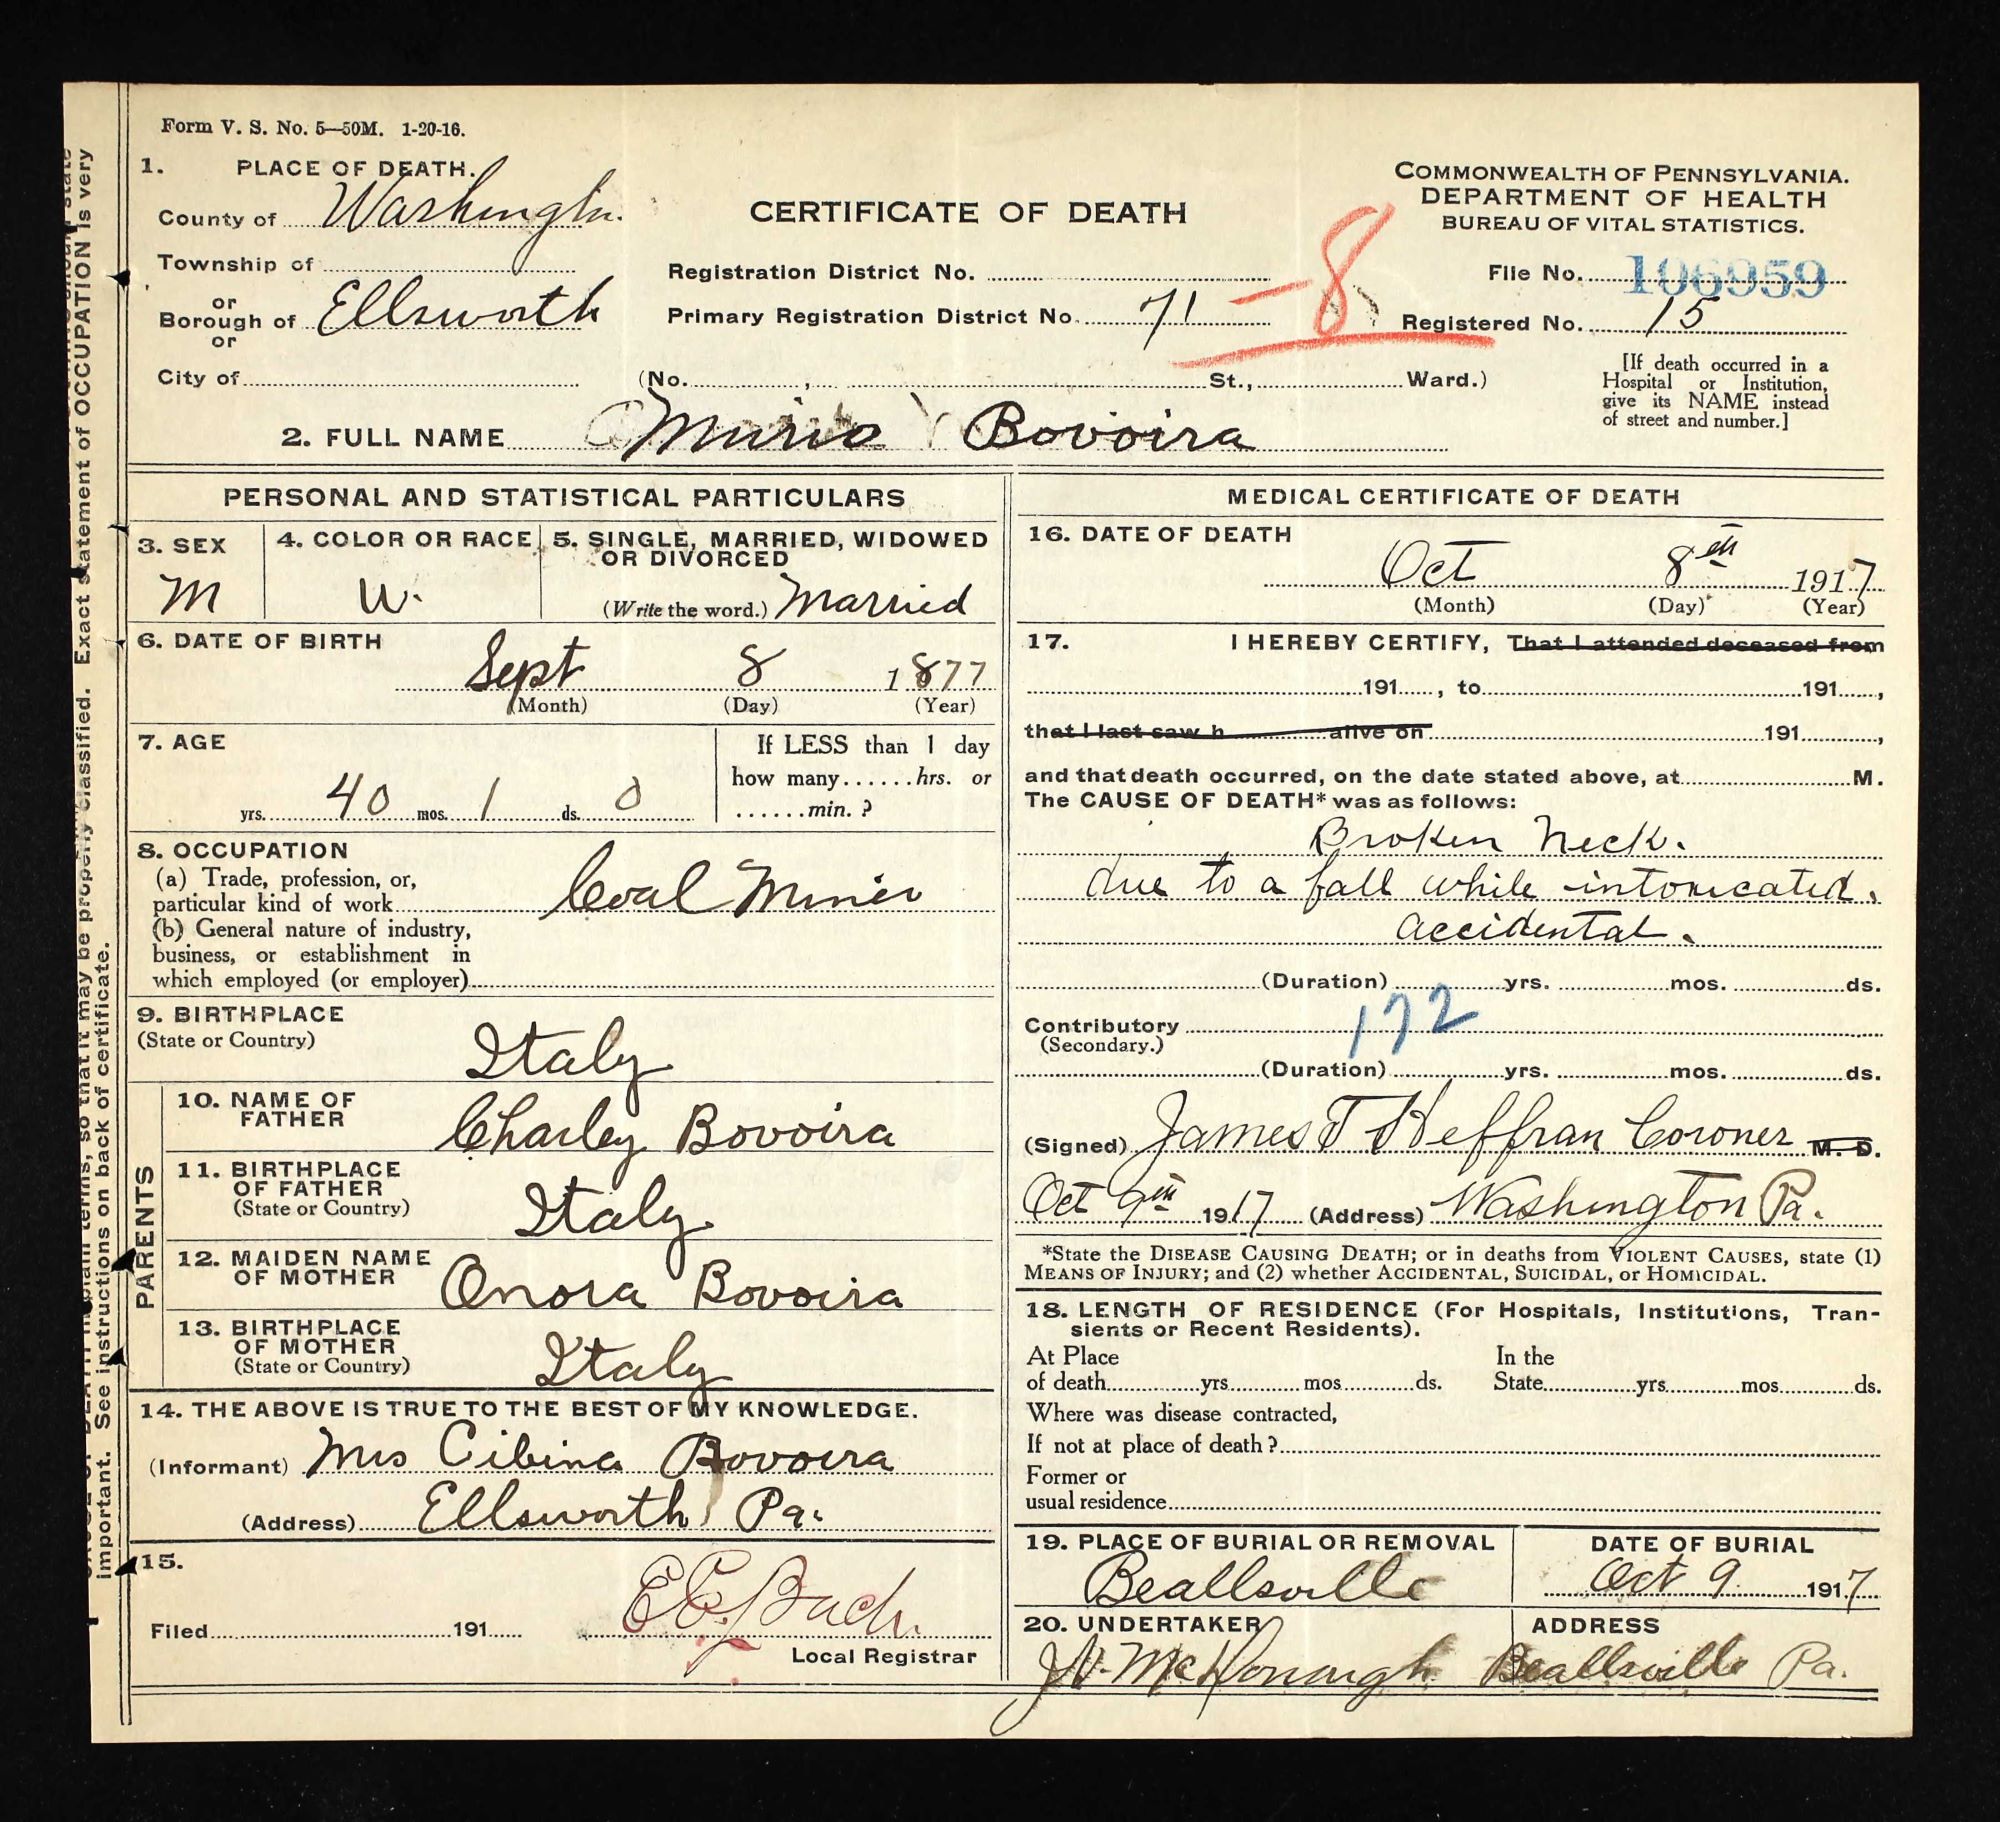 Form V. S. No. 5—50M. 1-20-16.
1. PLACE OF DEATH.
County of Washington.
Township of
or
Borough of Ellsworth
or
City of
CERTIFICATE OF DEATH
Registration District No.
Primary Registration District No. 71
-8
(No. , St., Ward.)
COMMONWEALTH OF PENNSYLVANIA.
DEPARTMENT OF HEALTH
BUREAU OF VITAL STATISTICS.
File No. 106959
Registered No. 15
[If death occurred in a
Hospital or Institution,
give its NAME instead
of street and number.]
2. FULL NAME Bovoira
PERSONAL AND STATISTICAL PARTICULARS
3. SEX
M
4. COLOR OR RACE
W.
5. SINGLE, MARRIED, WIDOWED
OR DIVORCED
(Write the word.) Married
6. DATE OF BIRTH
Sept 8 1877
(Month) (Day) (Year)
7. AGE
yrs. 40 mos. 1 ds. 0
If LESS than 1 day
how many......hrs. or
......min. ?
8. OCCUPATION
(a) Trade, profession, or,
particular kind of work Coal Miner
(b) General nature of industry,
business, or establishment in
which employed (or employer)
9. BIRTHPLACE
(State or Country)
Italy
PARENTS
10. NAME OF
FATHER
Charley Bovoira
11. BIRTHPLACE
OF FATHER
(State or Country)
Italy
12. MAIDEN NAME
OF MOTHER
Onora Bovoira
13. BIRTHPLACE
OF MOTHER
(State or Country)
Italy
14. THE ABOVE IS TRUE TO THE BEST OF MY KNOWLEDGE.
(Informant) Mrs Cibina Bovoira
(Address) Ellsworth Pa.
15.
Filed 191
E E Bach
Local Registrar
MEDICAL CERTIFICATE OF DEATH
16. DATE OF DEATH
Oct 8th 1917
(Month) (Day) (Year)
17. I HEREBY CERTIFY, That I attended deceased from
191 , to 191 ,
that I last saw h alive on 191 ,
and that death occurred, on the date stated above, at M.
The CAUSE OF DEATH* was as follows:
Broken Neck.
due to a fall while intoxicated.
accidental.
(Duration) yrs. mos. ds.
Contributory 172
(Secondary.)
(Duration) yrs. mos. ds.
(Signed) James T Heffran Coroner M. D.
Oct 9th 1917 (Address) Washington Pa.
*State the DISEASE CAUSING DEATH; or in deaths from VIOLENT CAUSES, state (1)
MEANS OF INJURY; and (2) whether ACCIDENTAL, SUICIDAL, or HOMICIDAL.
18. LENGTH OF RESIDENCE (For Hospitals, Institutions, Tran-
sients or Recent Residents).
At Place In the
of death yrs. mos. ds. State yrs. mos. ds.
Where was disease contracted,
If not at place of death ?
Former or
usual residence
19. PLACE OF BURIAL OR REMOVAL
Beallsville
DATE OF BURIAL
Oct 9 1917
20. UNDERTAKER
McDonough
ADDRESS
Beallsville Pa.
Exact statement of OCCUPATION is very
important. See instructions on back of certificate.